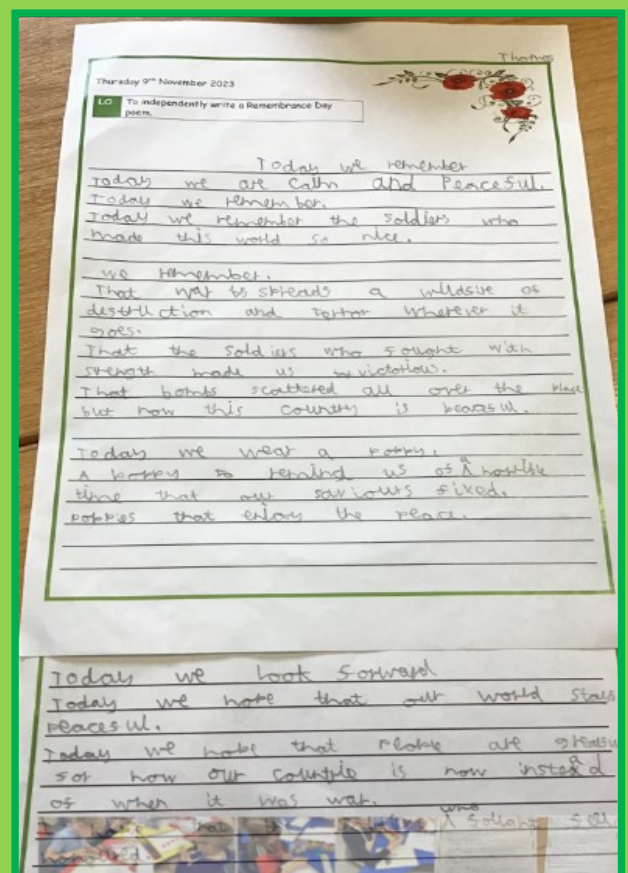 Thomas
Thursday 9th November 2023
LO To independently write a Remembrance Day
poem.
Today we remember
Today we are calm and Peaceful.
Today we remember.
Today we remember the soldiers who
made this world so nice.
we remember.
That war spreads a wildfire of
destruction and terror wherever it
goes.
That the soldiers who fought with
strength made us victorious.
That bombs scattered all over the place
but now this country is peaceful.
Today we wear a poppy.
A poppy to remind us of a horrible
time that our saviours fixed.
poppies that enjoy the peace.
Today we look forward
Today we hope that our world stays
peaceful.
Today we hope that people are
for how our countrie is now instead
of when it was war.
I hope that the who fought
honoured.